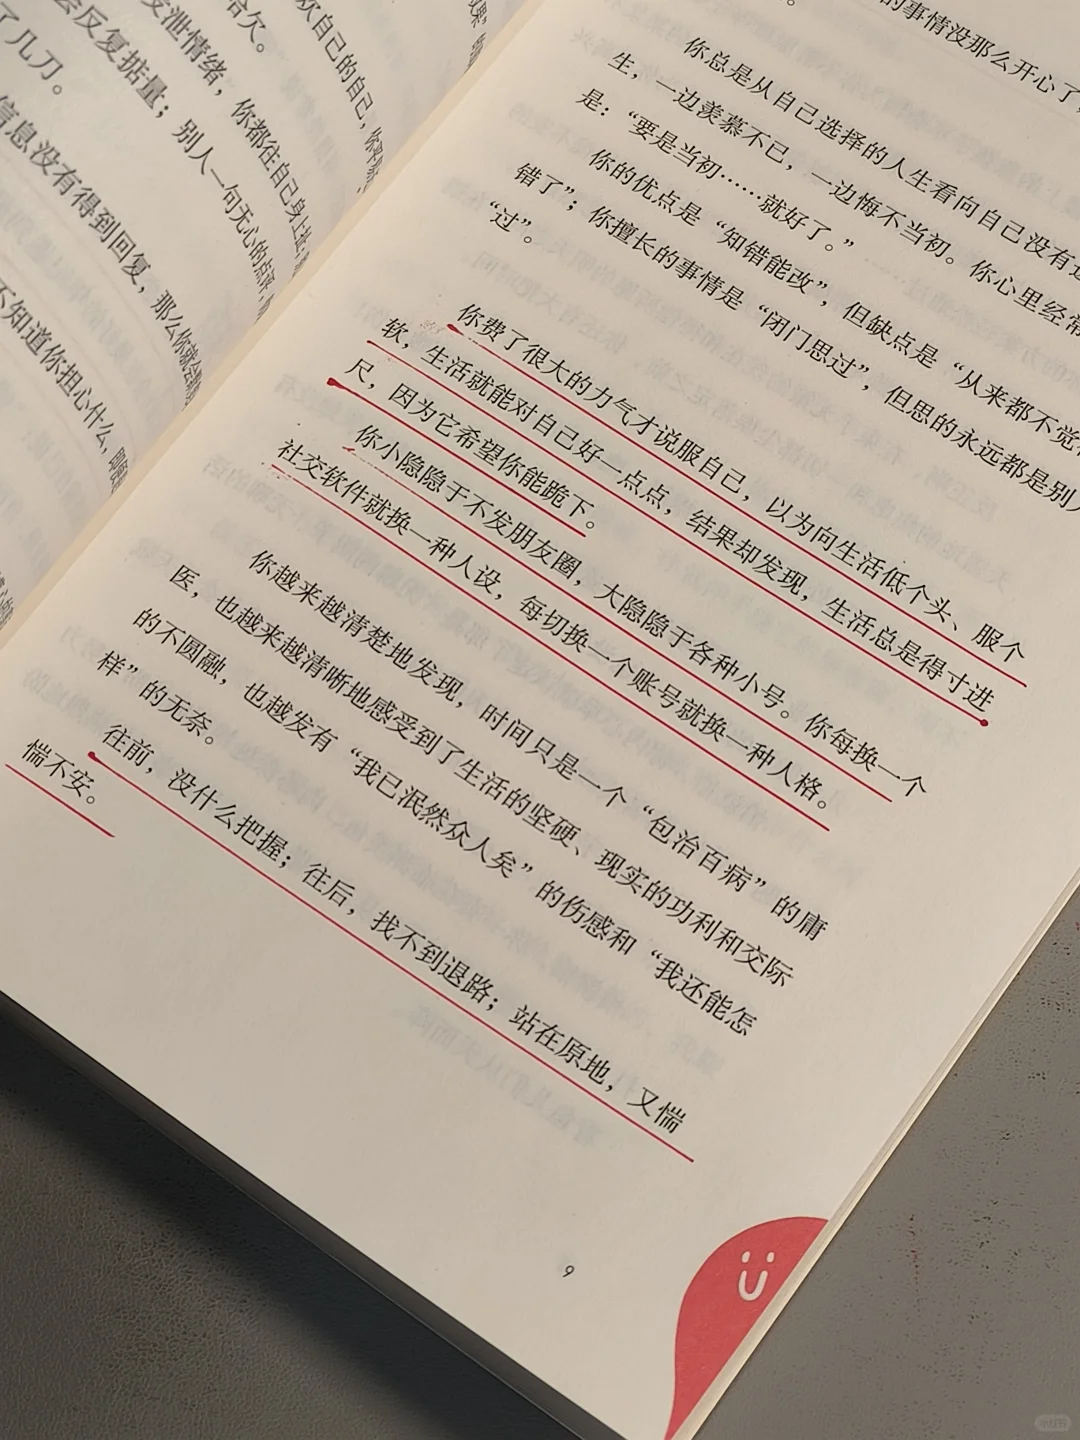 哈欠。
发泄情绪，你都往自己身上
会反复掂量；别人一句无心的点评，
了几刀。
信息没有得到回复，那么你就会
不知道你担心什么，
欢自己的自己，
的事情没那么开心了，
你总是从自己选择的人生看向自己没有选
生，一边羡慕不已，一边悔不当初。你心里经常
是：“要是当初……就好了。”
你的优点是“知错能改”，但缺点是“从来都不觉
错了”；你擅长的事情是“闭门思过”，但思的永远都是别人
“过”。
你费了很大的力气才说服自己，以为向生活低个头、服个
软，生活就能对自己好一点点，结果却发现，生活总是得寸进
尺，因为它希望你能跪下。
你小隐隐于不发朋友圈，大隐隐于各种小号。你每换一个
社交软件就换一种人设，每切换一个账号就换一种人格。
你越来越清楚地发现，时间只是一个“包治百病”的庸
医，也越来越清晰地感受到了生活的坚硬、现实的功利和交际
的不圆融，也越发有“我已泯然众人矣”的伤感和“我还能怎
样”的无奈。
往前，没什么把握；往后，找不到退路；站在原地，又惴
惴不安。
9
小红书